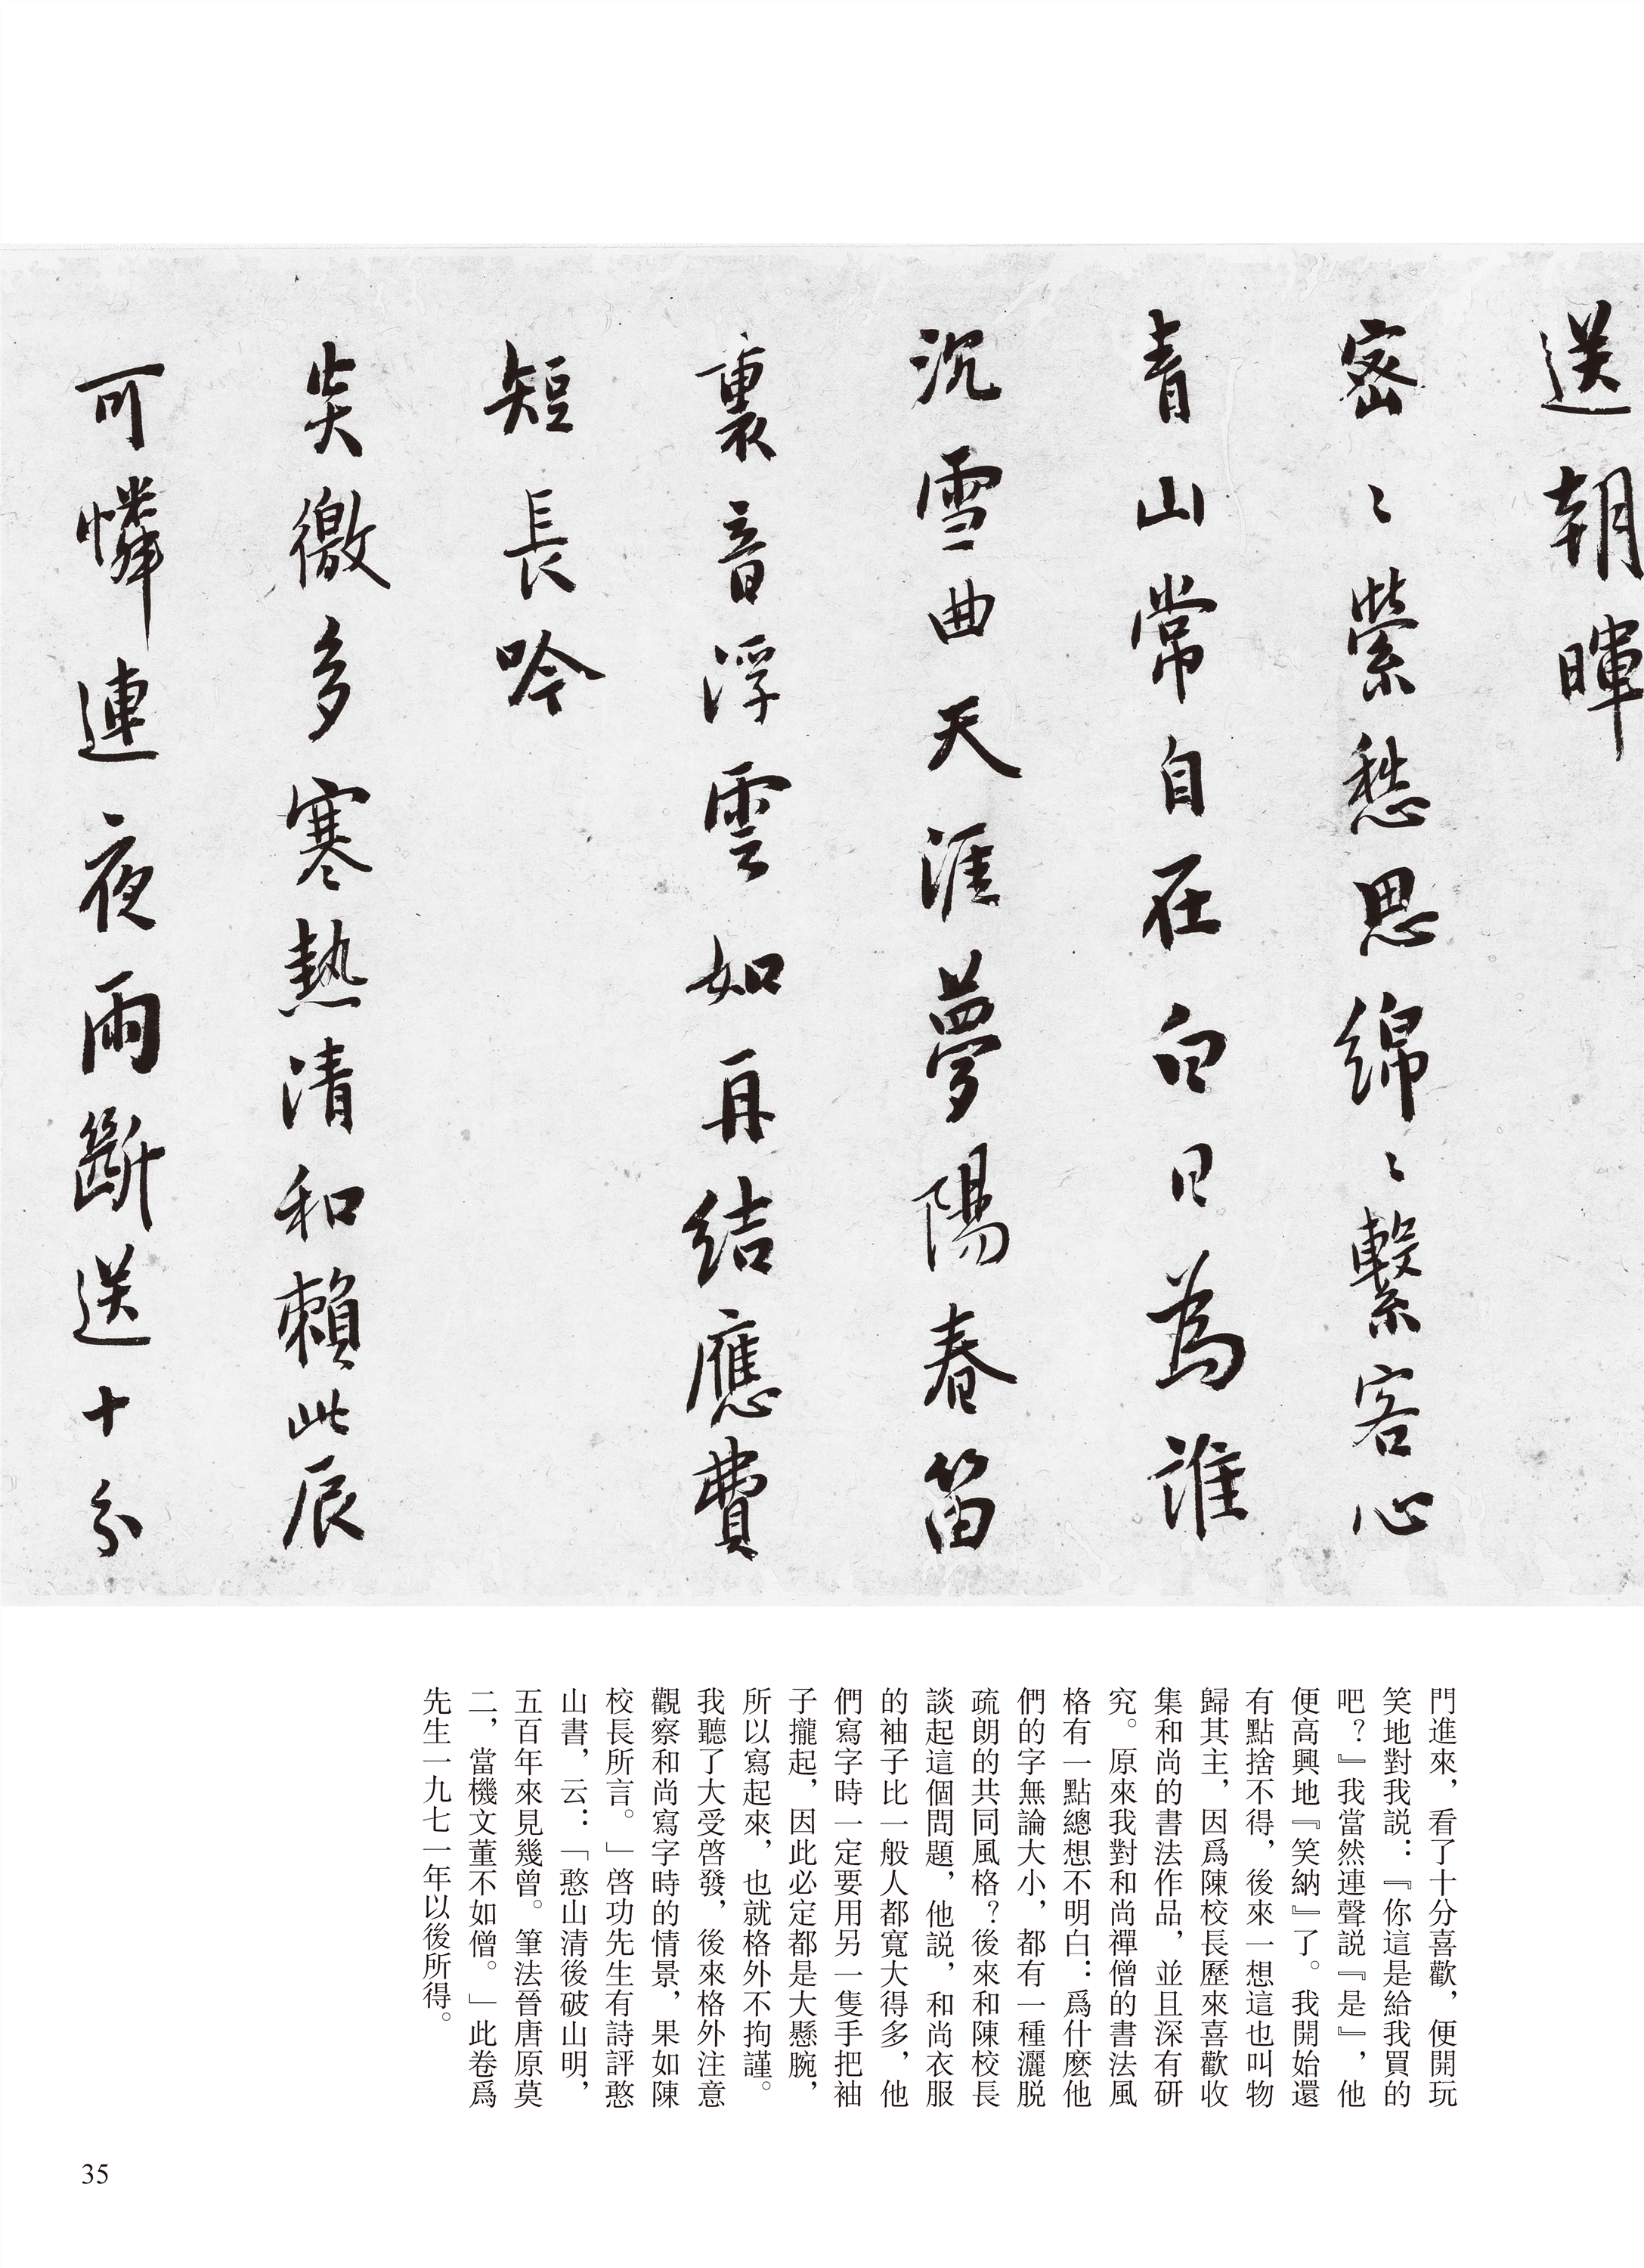 送朝暉
密〻縈愁思綿〻繫客心
青山常自在白日為誰
沉雪曲天涯夢陽春笛
裏音浮雲如再結應費
短長吟
炎徼多寒熱清和賴此辰
可憐連夜雨斷送十分
門進來，看了十分喜歡，便開玩
笑地對我説：『你這是給我買的
吧？』我當然連聲説『是』，他
便高興地『笑納』了。我開始還
有點捨不得，後來一想這也叫物
歸其主，因爲陳校長歷來喜歡收
集和尚的書法作品，並且深有研
究。原來我對和尚禪僧的書法風
格有一點總想不明白：爲什麽他
們的字無論大小，都有一種灑脱
疏朗的共同風格？後來和陳校長
談起這個問題，他説，和尚衣服
的袖子比一般人都寬大得多，他
們寫字時一定要用另一隻手把袖
子攏起，因此必定都是大懸腕，
所以寫起來，也就格外不拘謹。
我聽了大受啓發，後來格外注意
觀察和尚寫字時的情景，果如陳
校長所言。」啓功先生有詩評憨
山書，云：「憨山清後破山明，
五百年來見幾曾。筆法晉唐原莫
二，當機文董不如僧。」此卷爲
先生一九七一年以後所得。
35